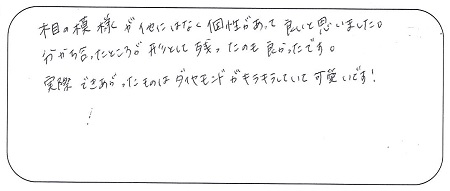 木目の模様が他にはなく個性があって良いと思いました。
分かち合ったところが形として残ったのも良かったです。
実際できあがったものはダイヤモンドがキラキラしていて可愛いです!